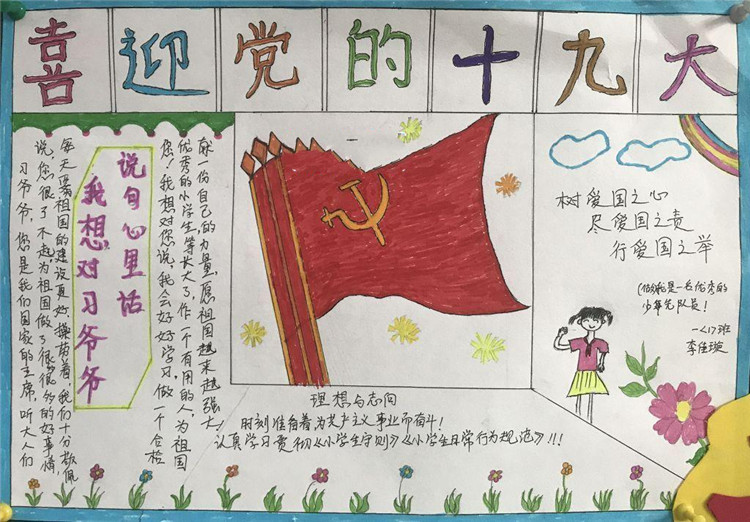 喜迎党的十九大
我想对习爷爷
说句心里话
习爷爷，您是我们国家的主席，听大人们
说，您很了不起，为祖国做了很多很多的好事情，
每天为祖国的建设更好操劳着，我们十分敬佩
您！我想对您说，我会好好学习，做一个合格
优秀的小学生等长大了，作一个有用的人，为祖国
献一份自己的力量，愿祖国越来越强大
理想与志向
时刻准备着为共产主义事业而奋斗！
认真学习贯彻《小学生守则》《小学生日常行为规范》！！！
树爱国之心
尽爱国之责
行爱国之举
我是一名优秀的
少年先队员！
一<1>班
李佳璇